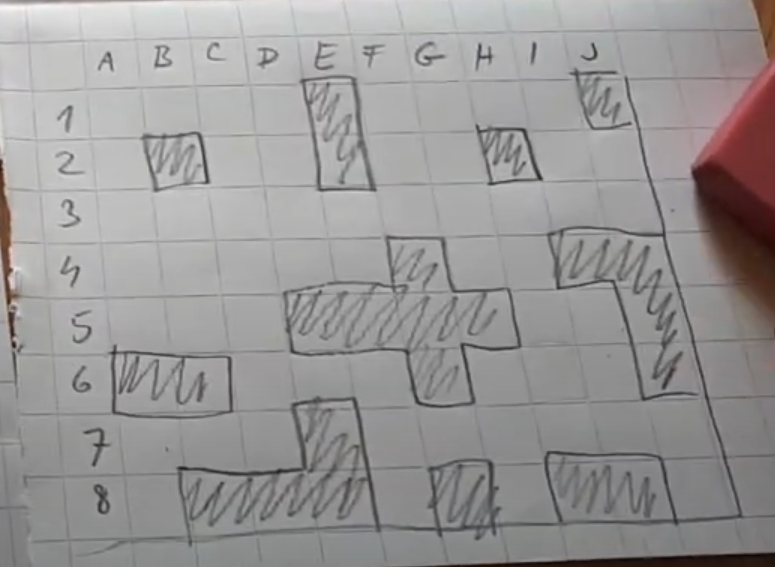 A B C D E F G H I J
1
2
3
4
5
6
7
8